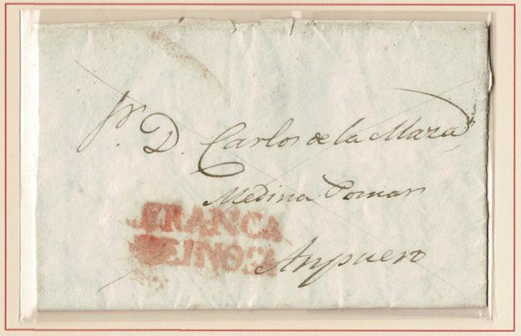 Sr. D. Carlos de la Maza
Medina Pomar
FRANCA
REINOSA
Ampuero